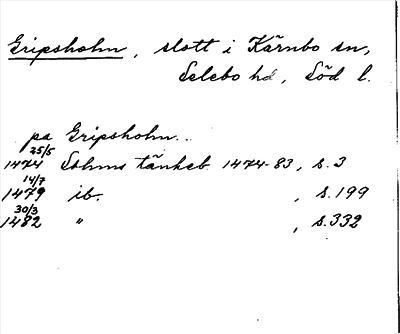 Gripsholm, slott i Kärnbo sn,
Selebo hd, Söd l.
pa Gripsholm..
25/5
1474 Sthms tänkeb 1474-83, s. 3
14/7
1479 ib. , s. 199
30/3
1482 " , s. 332